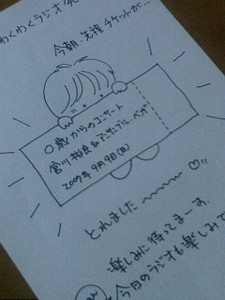 わくわくラジオ
今朝 先程 チケットが…
0歳からのコンサート
宮川彬良&アンサンブル・ベガ
2007年9月9日(日)
とれました〜〜〜〜♡
楽しみに待ってまーす。
今日のラジオも楽しみで